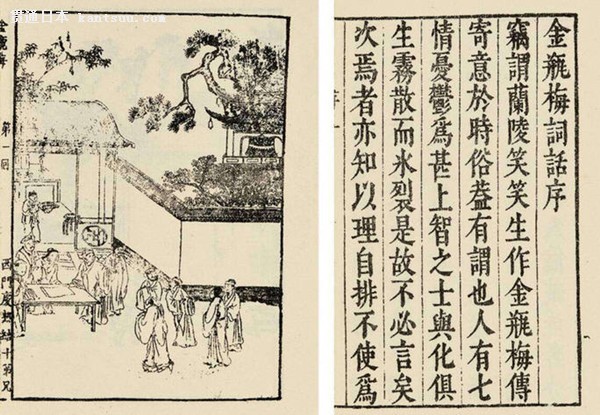 金瓶梅詞話序
竊謂蘭陵笑笑生作金瓶梅傳
寄意於時俗葢有謂也人有七
情憂鬱爲甚上智之士與化俱
生霧散而氷裂是故不必言矣
次焉者亦知以理自排不使爲
通日本 kantsuu.com
金瓶梅
第一回
西門慶熱結十弟兄